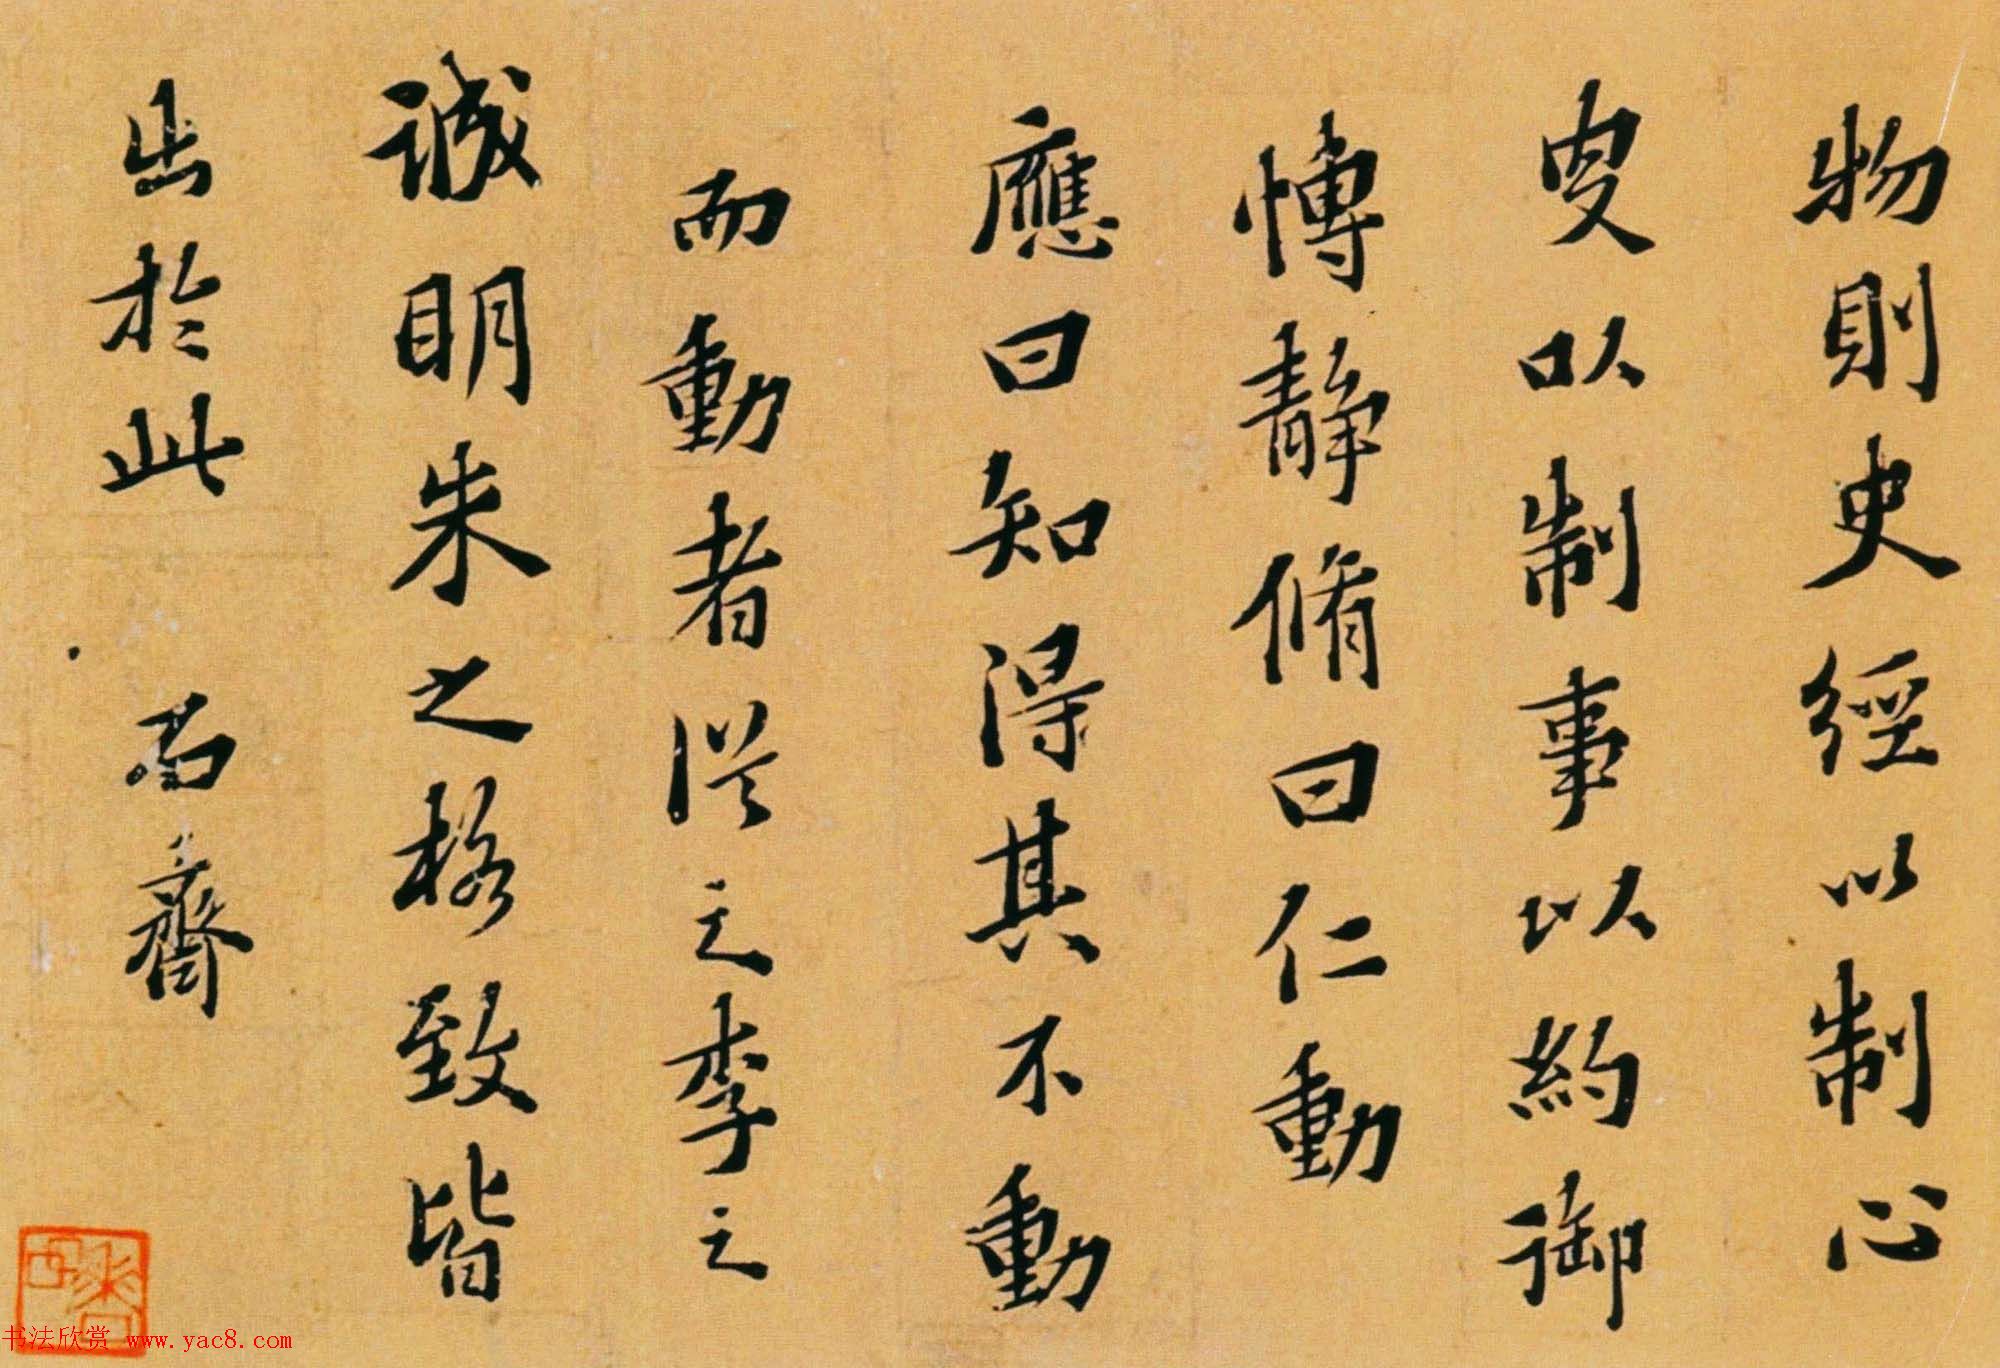 物則史經以制心
叟以制事以約御
慱靜脩曰仁動
應曰知得其不動
而動者從之李之
誠明朱之格致皆
出於此 石齋
书法欣赏 www.yac8.com